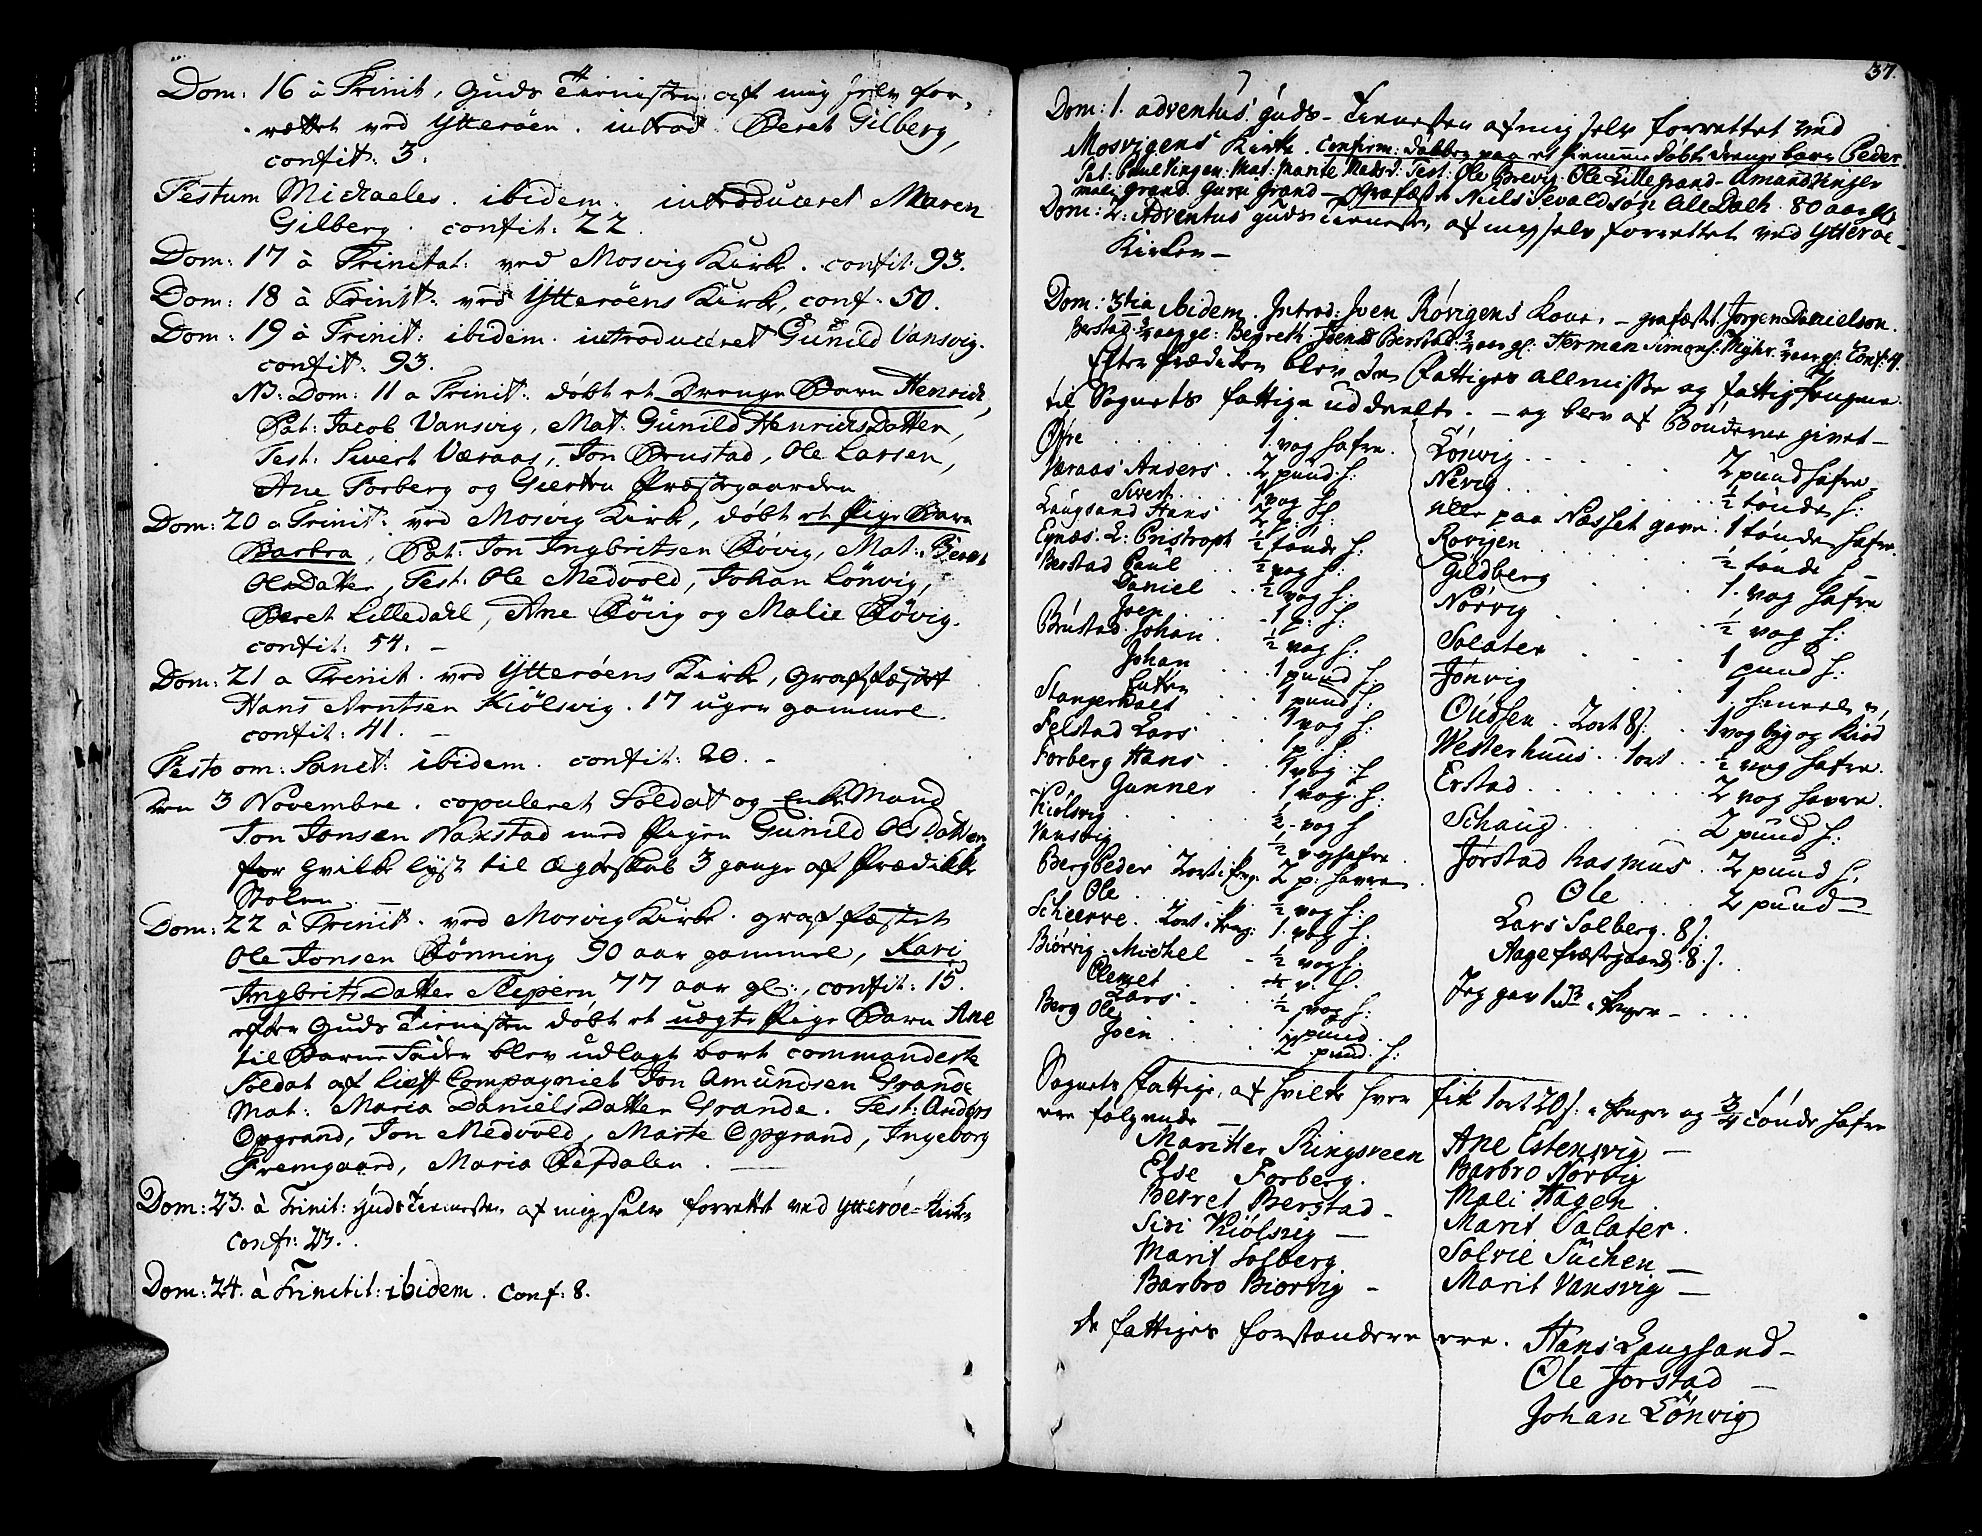 Dom: 16 â Trinit, Guds Tienisten aff mig selv for,
rættet ved Ytteröen. introd. Beret Gilberg,
confit: 3.
Festum Michaeles. ibidem. introduceret Maren
Gilberg. confit: 22.
Dom: 17 â Trinitat: ved Mosvig Kirke. confit: 93.
Dom: 18 â Trinit: ved Ytteröens Kirke, conf: 50.
Dom: 19 â Trinit: ibidem. introduceret Gunild Vansvig.
confit: 93.
NB: Dom: 11 a Trinit: döbt et Drenge Barn Henrich,
Pat: Jacob Vansvig, Mat: Gunild HenrichsDatter,
Test: Sivert Væraas, Jon Brustad, Ole Larsen,
Ane Forberg og Giertru Præstegaarden
Dom: 20 a Trinit: ved Mosvig Kirke, döbt et Pige Barn
Barbra, Pat: Jon Ingbritsen Rövig, Mat: Beret
OlsDatter, Test: Ole Medvold, Johan Lönvig,
Beret Lilledahl, Ane Rövig og Malie Rövig.
confit: 54. –
Dom: 21 a Trinit. ved Ytteröens Kirke, Graffæstet
Hans Arntsen Kiölsvig. 17 uger gammel.
confit: 41. –
Festo om: Sanct: ibidem. confit: 20. –
Den 3 Novembre. copuleret Soldat og EnkeMand
Jon Jonsen Naxstad med Pigen Gunild OlsDatter,
for hvilke lyst til Ægteskab 3 gange af Prædikke
Stolen. –
Dom: 22 â Trinit. ved Mosvig Kirke. graffæstet
Ole Jonsen Rönning 90 aar gammel, Kari
IngbritsDatter Slepern 77 aar gl:, confit: 15.
efter Guds Tienisten döbt et uægte Pige Barn Ane
til Barne Fader blev udlagt bort commanderte
Soldat af Lieft Compagniet Jon Amundsen Grande
Mat: Maria DanielsDatter Grande. Test: Anders
Opgrand, Jon Medvold, Marte Opgrand, Ingeborg
Fremgaard, Maria Refdalen. –
Dom: 23. â Trinit: Guds Tienesten af mig selv forrettet ved Ytteröe-Kirke
Conf: 23.
Dom: 24. â Trinitit: ibidem. Conf: 8.
37.
Dom: 1. adventus. Guds-Tienesten af mig selv forrettet ved
Mosvigens Kirke. Confirm: Daaben paa et hiemme Döbt drenge barn Peder
Pat: Paul Vingen. Mat: Marite Test: Ole Brevig. Ole Lille grand. Amand Vinger
mali grand. Guru Grand – grafæstet Niels Sevaldsön LilleDalh. 80 aar gl:
Dom: 2: Adventus Guds Tienesten af mig selv forrettet ved Ytteröe-
Kirken –
Dom: 3tia ibidem. Introd: Joen Rörigens Kone. – grafæstet Jörgen Danielson.
Berstad aar gl: Beyreth Joens Berstad aar gl: Herman Simons: Myhr. aar gl: Conf: 4.
Efter Prædiken blev den Fattiges Allmisse og fattig Pengene
til Sognets fattige uddeelt. – og blev af Bönderne givet –
Öfre . . . 1. vog hafre.
Væraas Anders . . 2 pund. h:
Sivert . . . 1 vog h:
Laugsand Hans 2 p: h:
Eynæs. L: Pristroph ½ tönde h:
Berstad Paul . . ½ vog h:
Daniel . . ½ vog h:
Joen . . 1 p: h:
Brustad Johan . ½ vog h:
Johan . . 1 pund h:
Enken . . 1 pund h:
Stangerholt . . 1 vog h:
Felstad Lars . . 1 p. h:
Forberg Hans . . 1 vog. h
Gunner . 1 vog. h:
Kiölsvig . . . ½ vog h
Vansvig . . . ½ vog hafre.
Berg Peder 2 ort i Peng. 2 p: havre.
Ole . . . ½ vog h:
Scheerve. 2 ort i Peng: 1. vog h:
Biörvig. Michel – ½ vog h.
Clemet . . ½ v. h.
Lars . . ½ vog h:
Berg Ole . . 1 pund.
Joen . . . 2 pund. h:
Lönvig . . . 2 pund hafre.
Nevig . . . ½ tönde h:
alle paa Næsset gave. 1 tönde hafre.
Rovigen . . . ½ tönde h
Gildberg . . . 1. vog hafre
Nörvig . . . ½ vog h:
Salater . . . 1 pund h:
Jönvig . . .
Oldssen . 2 ort 8 ſ. . 1 vog byg og Kiöd
Westerhuus . 1 ort . . ½ vog hafre.
Erstad . . . 2 vog havre.
Schaug . . . 2 pund h:
Jörstad Rasmus . 2 pund h.
Ole . . . 2 pund –
Lars Solberg. 8 ſ.
Aage Præstegaard. 8 ſ.
Jeg gav 1 i Penger – . . .
Sognets Fattige, af hvilke hver fik 1 ort 20 ſ: i Penger og ¾ Tönde hafre
ere fölgende –
Maritter Ringsveen
Else Forberg.
Beret Berstad –
Siri Kiölsvig –
Marit Solberg.
Barbro Biorvig –
Ane Estensvig –
Barbro Nörvig
Mali Hagen.
Marit Salater.
Salvie Suchen –
Marit Vansvig –
De fattiges forstandere ere. Hans Laugsand –
Ole Jorstad –
Johan Lönvig